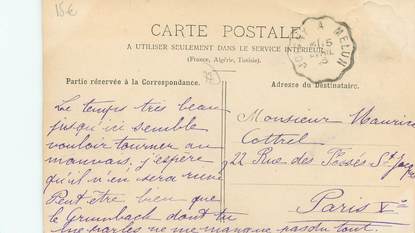 15€
CARTE POSTALE
A UTILISER SEULEMENT DANS LE SERVICE INTÉRIEUR
(France, Algérie, Tunisie).
A MELUN
Partie réservée à la Correspondance.
Adresse du Destinataire.
Le temps très beau
jusqu'ici semble
vouloir tourner au
mauvais, j'espère
qu'il n'en sera rien
Peut être bien que
le Grumbach dont tu
me parles ne me manque pas du tout.
Monsieur Maurice
Cottrel
22 Rue des Fossés St Jacques
Paris Ve